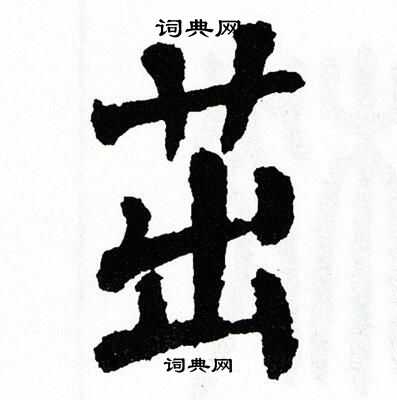 词典网
茁
词典网